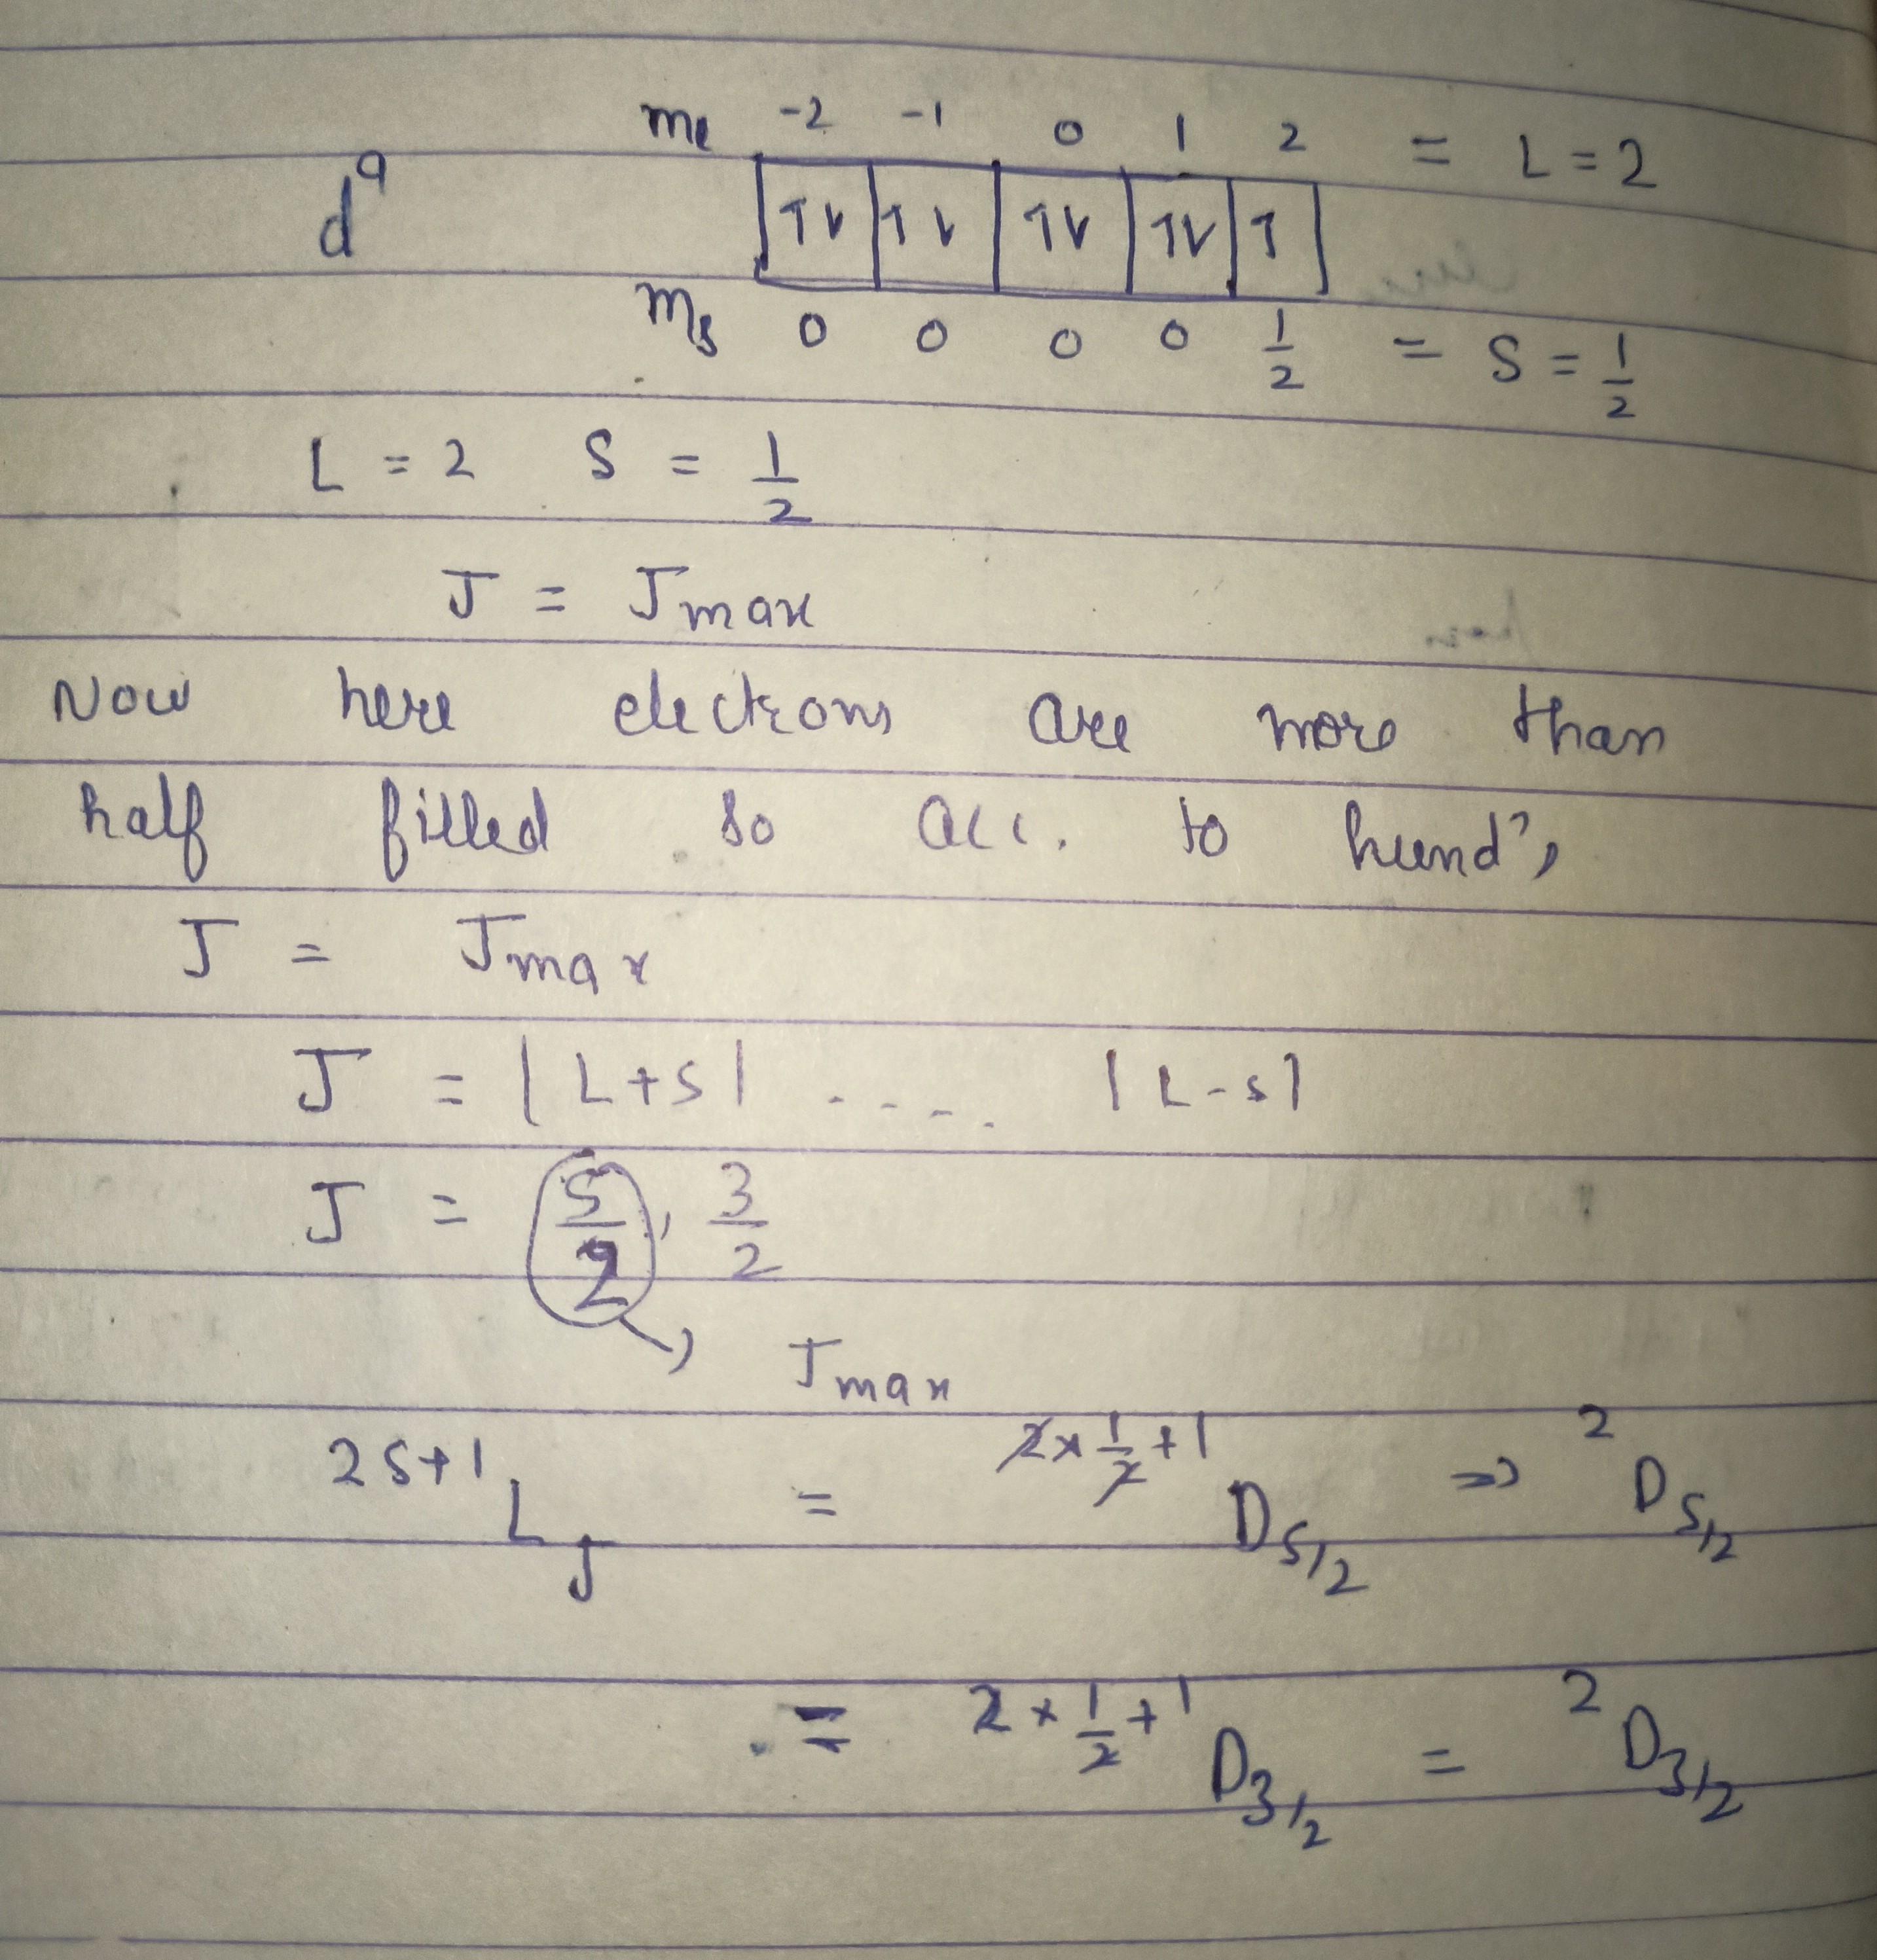 mₗ -2 -1 0 1 2 = L = 2
d⁹ ↑↓ ↑↓ ↑↓ ↑↓ ↑
mₛ 0 0 0 0 1/2 = S = 1/2
L = 2 S = 1/2
J = Jmax
Now here electrons are more than
half filled so acc. to hund's
J = Jmax
J = |L+S| ..... |L-S|
J = 5/2, 3/2
Jmax
2S+1 L J = 2×1/2+1 D5/2 ⇒ ²D5/2
= 2×1/2+1 D3/2 = ²D3/2